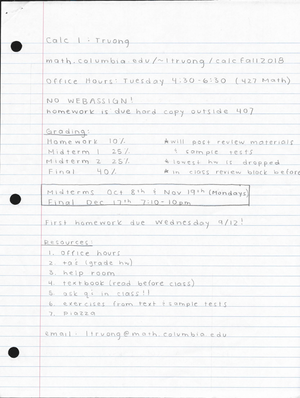 Calc 1 - Truong
math.columbia.edu/~ltruong/calcfall2018
Office Hours: Tuesday 4:30-6:30 (427 Math)
NO WEBASSIGN!
homework is due hard copy outside 407
Grading:
Homework 10% *will post review materials
Midterm 1 25% & sample tests
Midterm 2 25% *lowest hw is dropped
Final 40% * in class review block before
Midterms Oct 8th & Nov 19th (Mondays)
Final Dec 17th 7:10-10pm
First homework due Wednesday 9/12!
Resources:
1. office hours
2. ta's (grade hw)
3. help room
4. textbook (read before class)
5. ask q's in class!!
6. exercises from text & sample tests
7. piazza
email: ltruong@math.columbia.edu